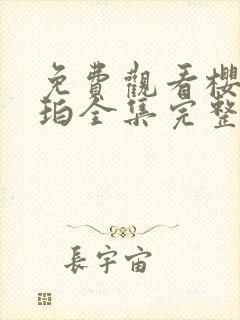 免費觀看櫻
珀全集完整
長宇宙